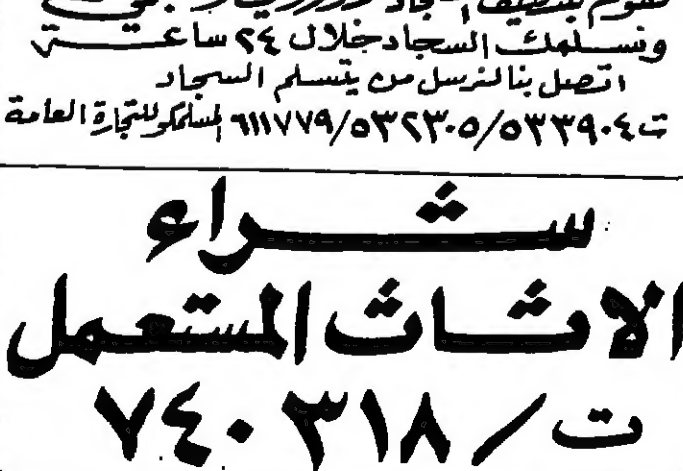 نقوم بتنظيف السجاد
ونسلمك السجاد خلال ٢٤ ساعة
اتصل بنا لنرسل من يتسلم السجاد
ت ٥٣٣٩٠٤/٥٣٢٣٠٥/٦١١٧٧٩ للتجارة العامة
شراء
الاثاث المستعمل
ت/ ٧٤٠٣١٨